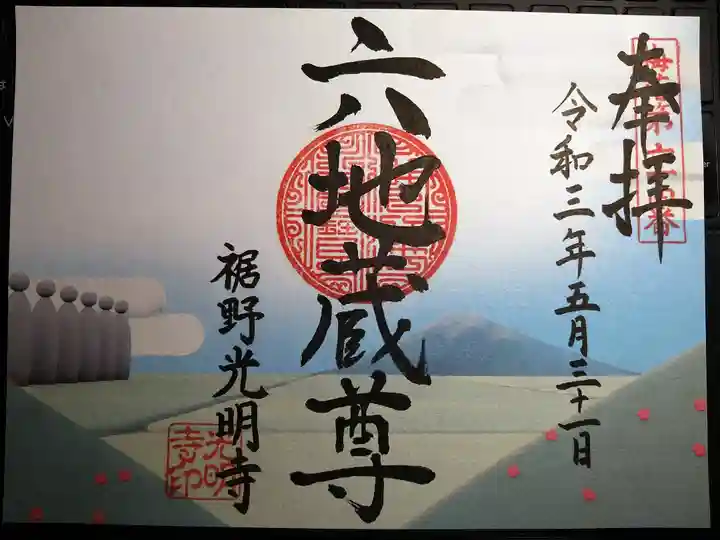 奉拝
令和三年五月三十一日
六地蔵尊
裾野光明寺
光明
寺印